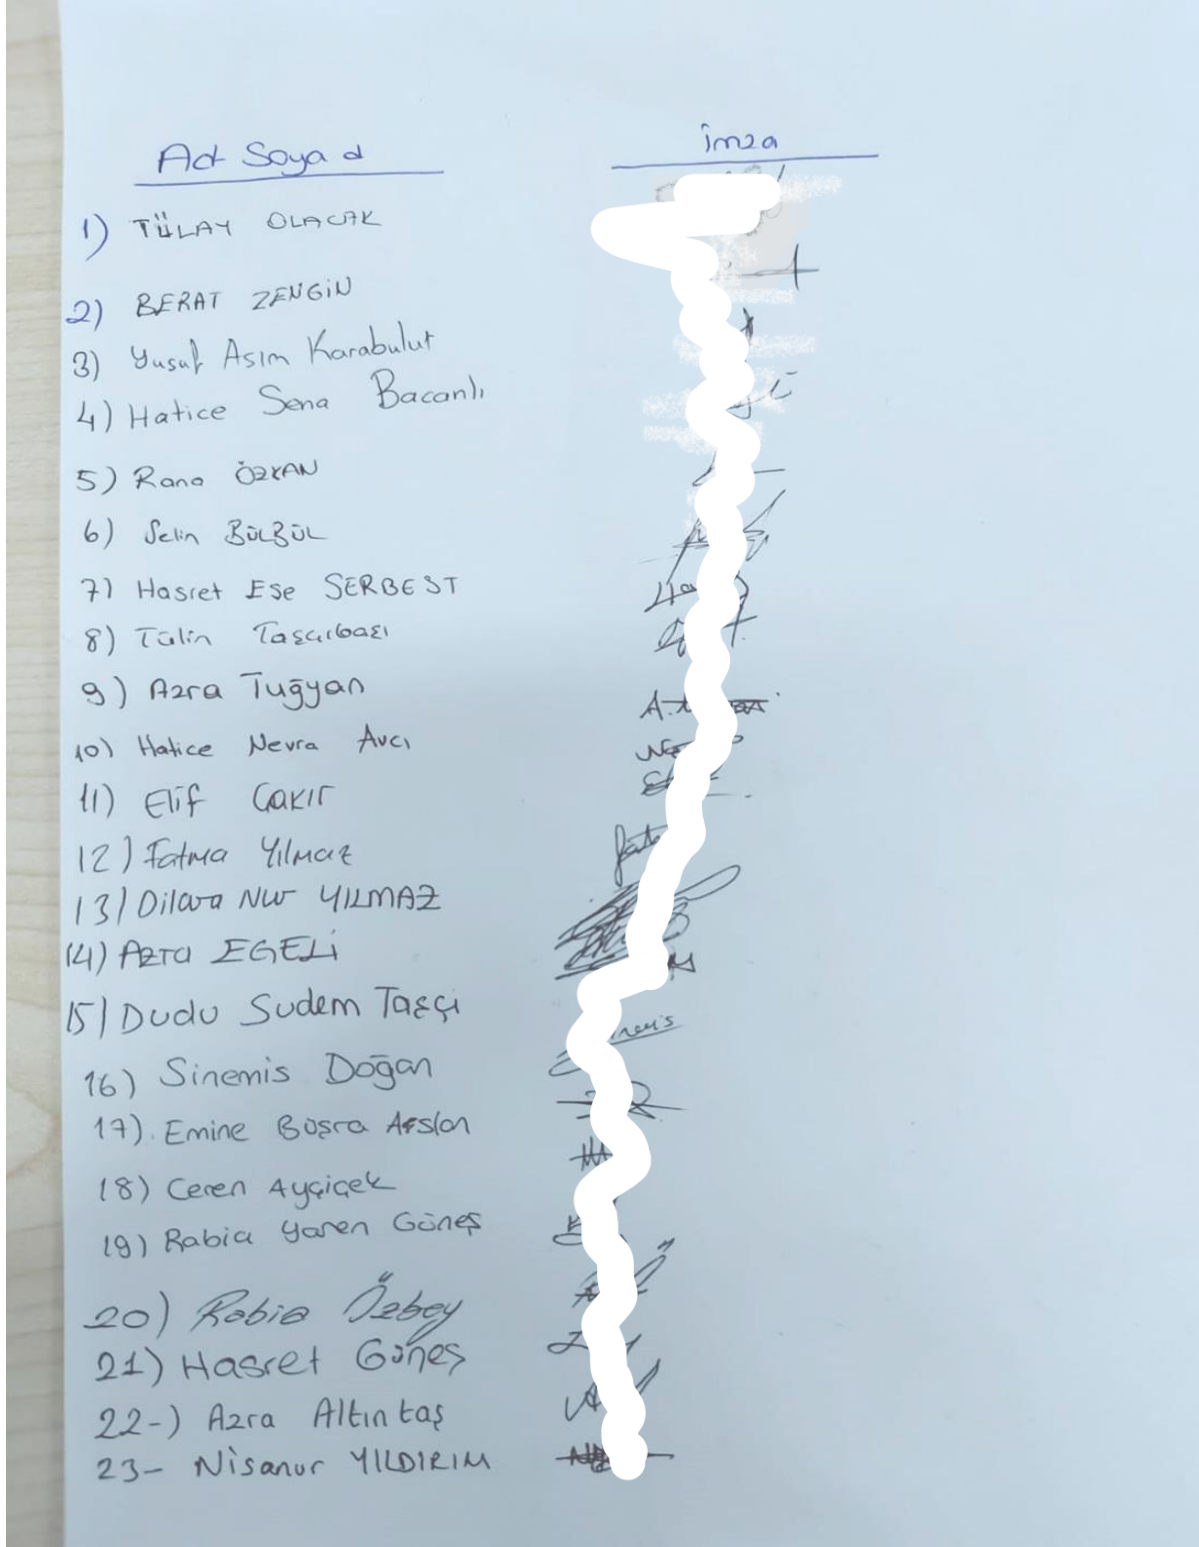 Ad Soyad
İmza
1) TÜLAY OLACAK
2) BERAT ZENGİN
3) Yusuf Asım Karabulut
4) Hatice Sena Bacanlı
5) Rana ÖZKAN
6) Selin BÜLBÜL
7) Hasret Ese SERBEST
8) Tülin Taşçıbaşı
9) Azra Tuğyan
10) Hatice Nevra Avcı
11) Elif Çakır
12) Fatma Yılmaz
13) Dilara Nur YILMAZ
14) Azra EGELİ
15) Dudu Sudem Taşçı
16) Sinemis Doğan
17). Emine Büşra Arslan
18) Ceren Ayçiçek
19) Rabia Yaren Güneş
20) Rabia Özbey
21) Hasret Güneş
22-) Azra Altıntaş
23- Nisanur YILDIRIM